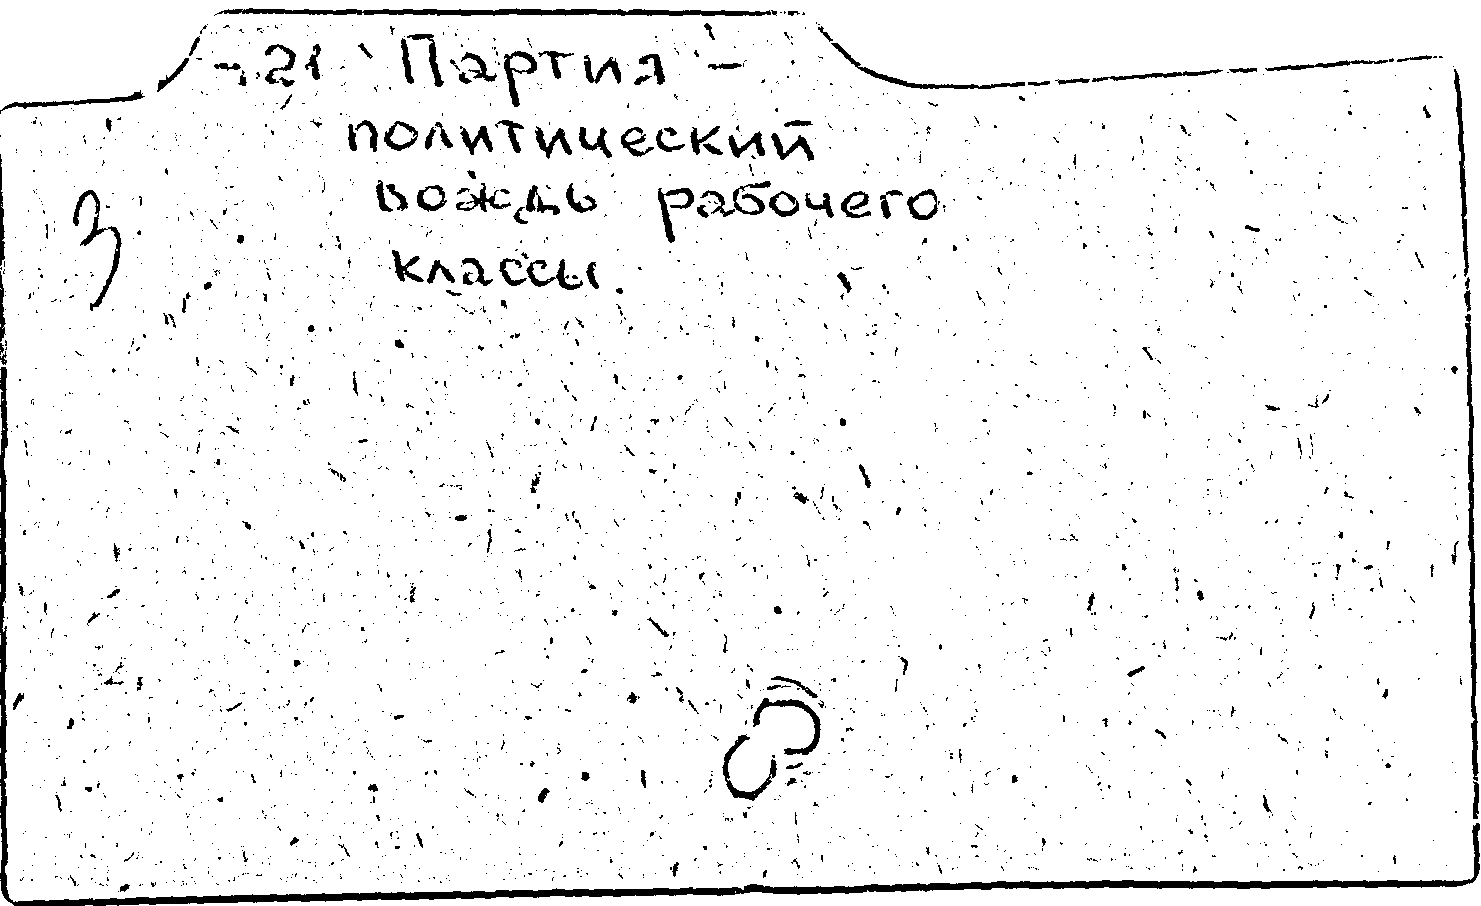 -21 Партия -
политический
вождь рабочего
классы.
3